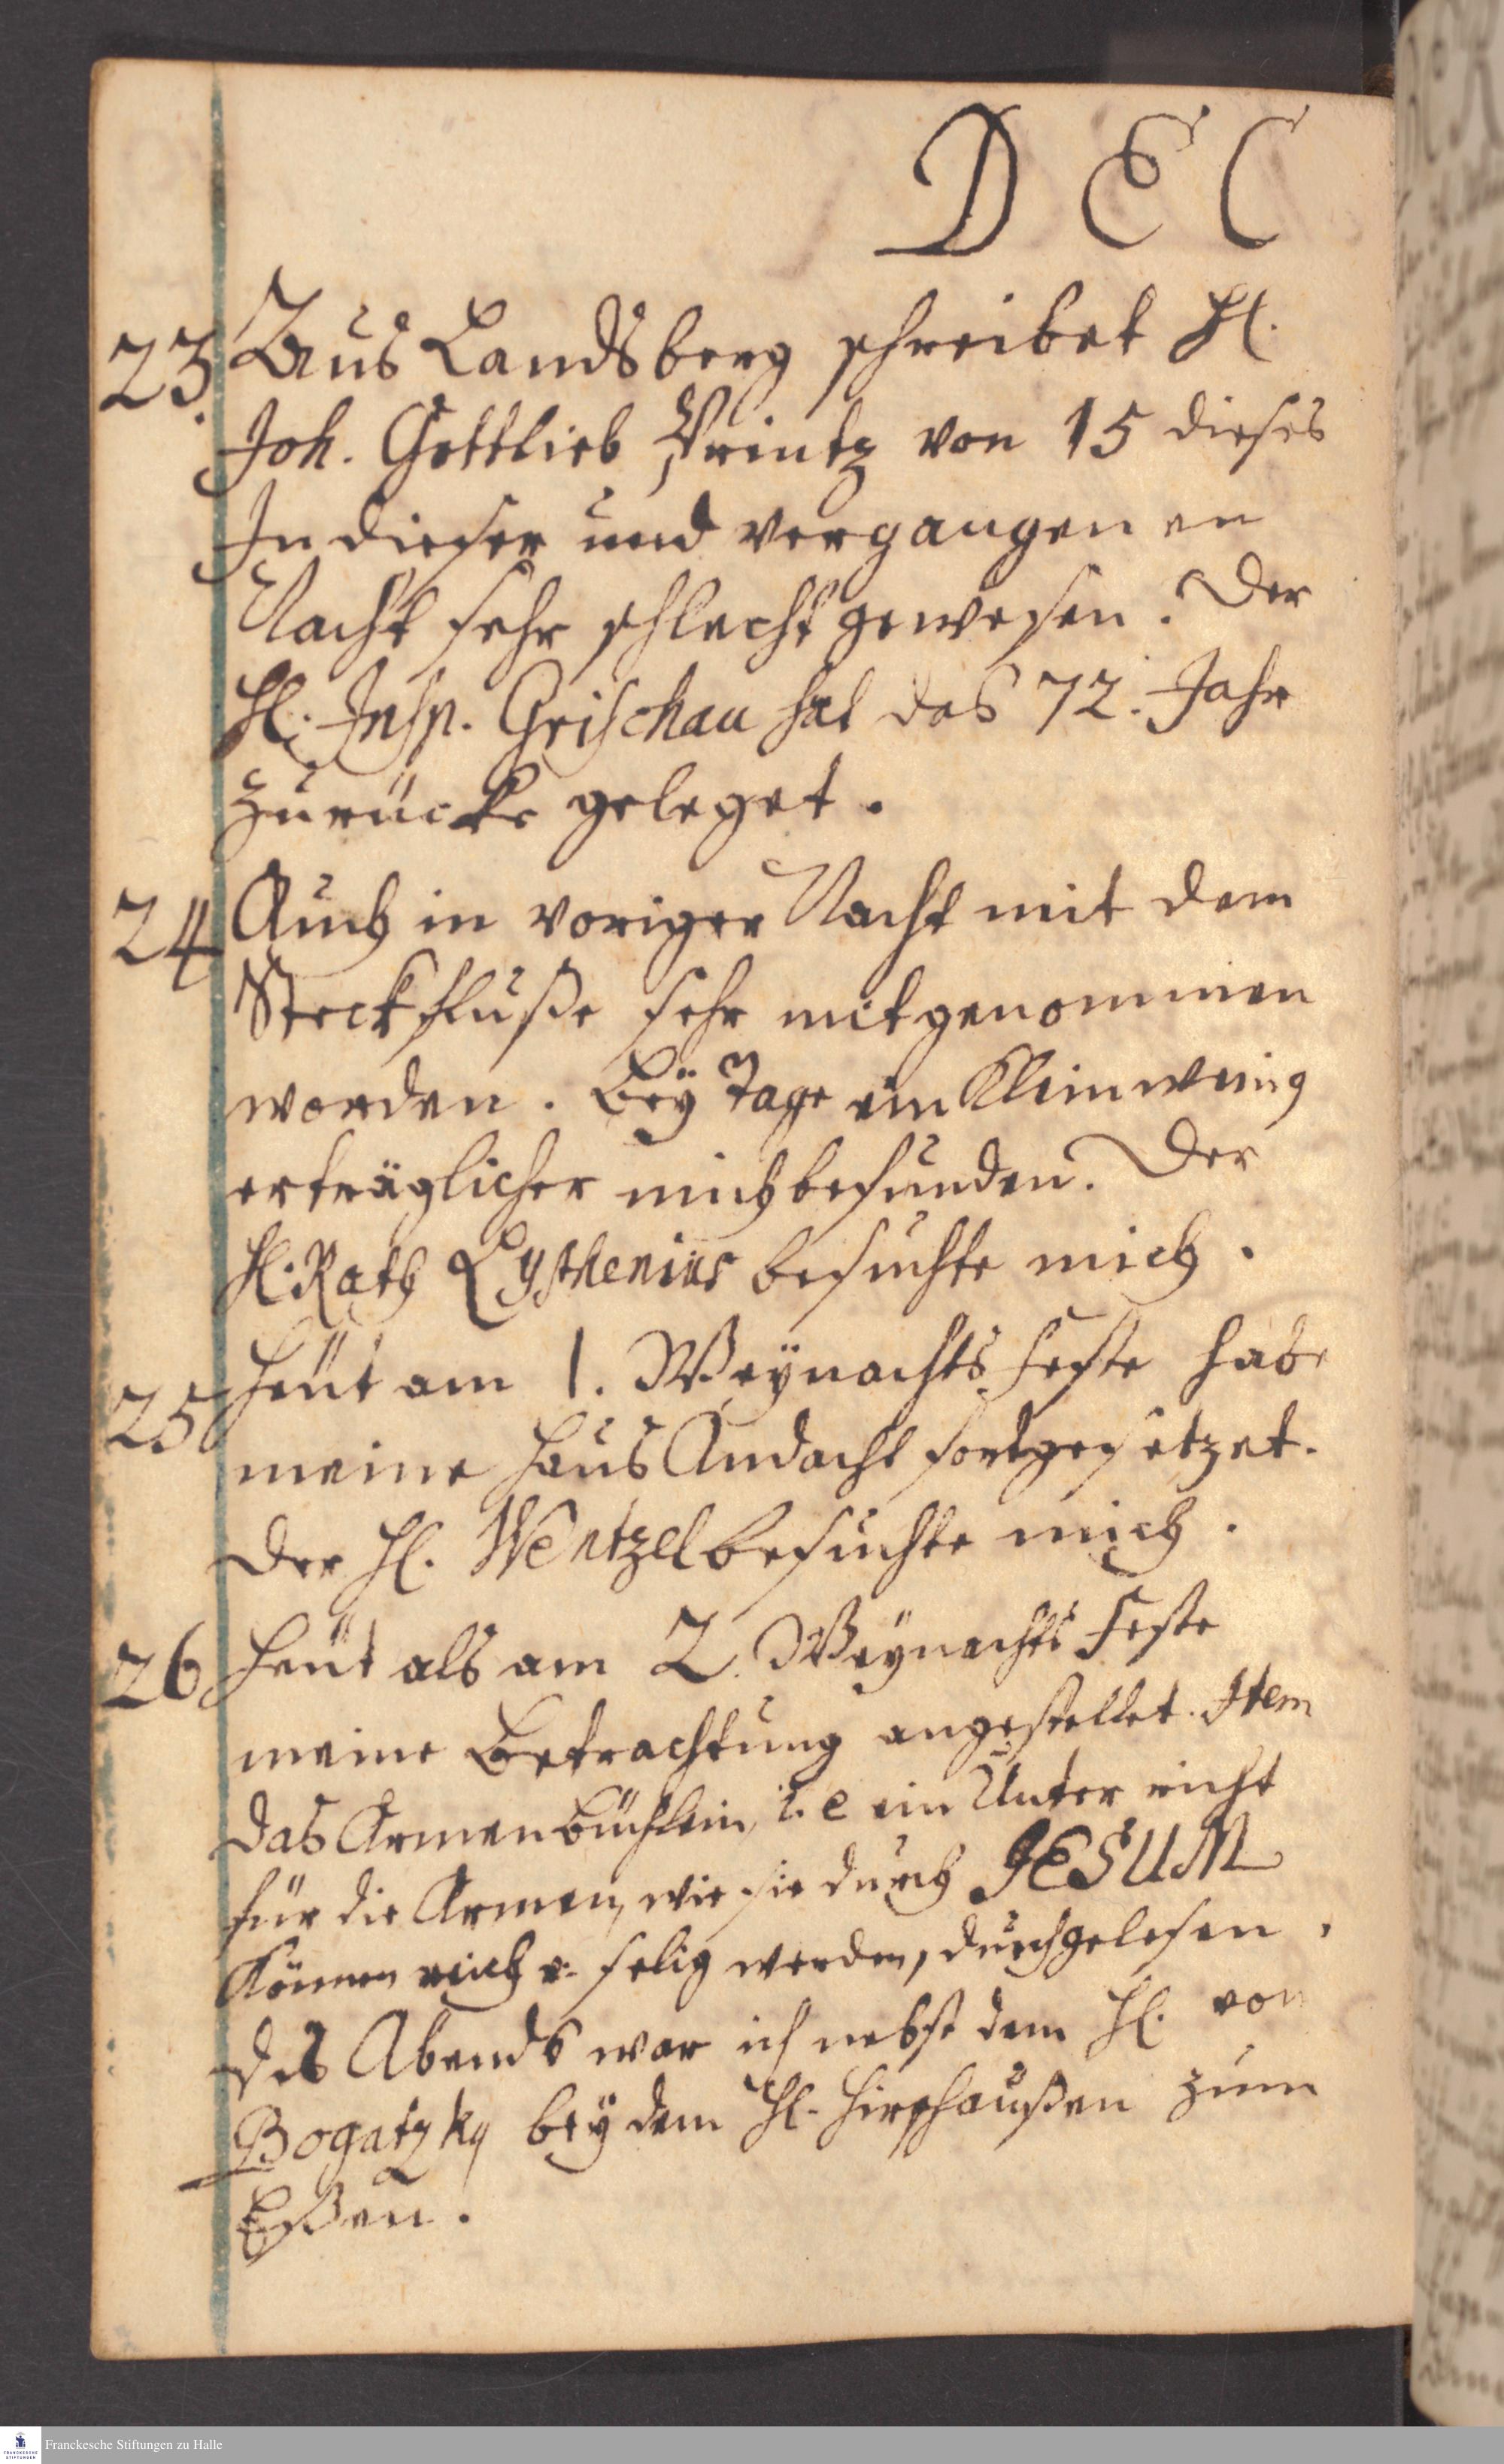 DEC
23. Aus Landsberg schreibet H.
Joh. Gottlieb Printz von 15 dieses
In dieser und vergangenen
Nacht sehr schlecht gewesen. Der
H. Insp. Grischau hat das 72. Jahr
zurücke geleget.
24 Auch in voriger Nacht mit dem
Steckfluße sehr mitgenommen
worden. Bey Tage ein klein wenig
erträglicher mich befunden. Der
H. Rath Lysthenius besuchte mich.
25 Heut am 1. Weynachts Feste habe
meine Haus Andacht fortgesetzet.
Der H. Wentzel besuchte mich.
26 Heut als am 2. Weynachts Feste
meine Betrachtung angestellet. Item
das Armenbüchlein, i. e ein Unterricht
für die Armen, wie sie durch JESUM
können reich u. selig werden, durchgelesen.
Des Abends war ich nebst dem H. von
Bogatzky bey dem H. Hirschaußen zum
Eßen.
Franckesche Stiftungen zu Halle